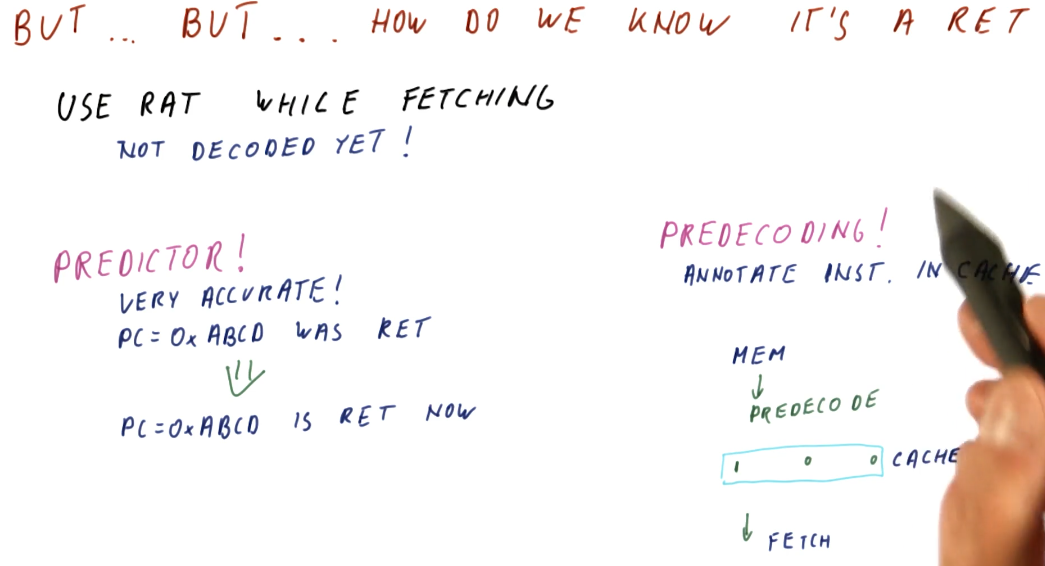 BUT ... BUT . . . . HOW DO WE KNOW IT'S A RET
USE RAT WHILE FETCHING
NOT DECODED YET !
PREDICTOR !
VERY ACCURATE !
PC = 0x ABCD WAS RET
PC = 0x ABCD IS RET NOW
PREDECODING !
ANNOTATE INST. IN CACHE
MEM
PREDECODE
1 0 0 CACHE
FETCH